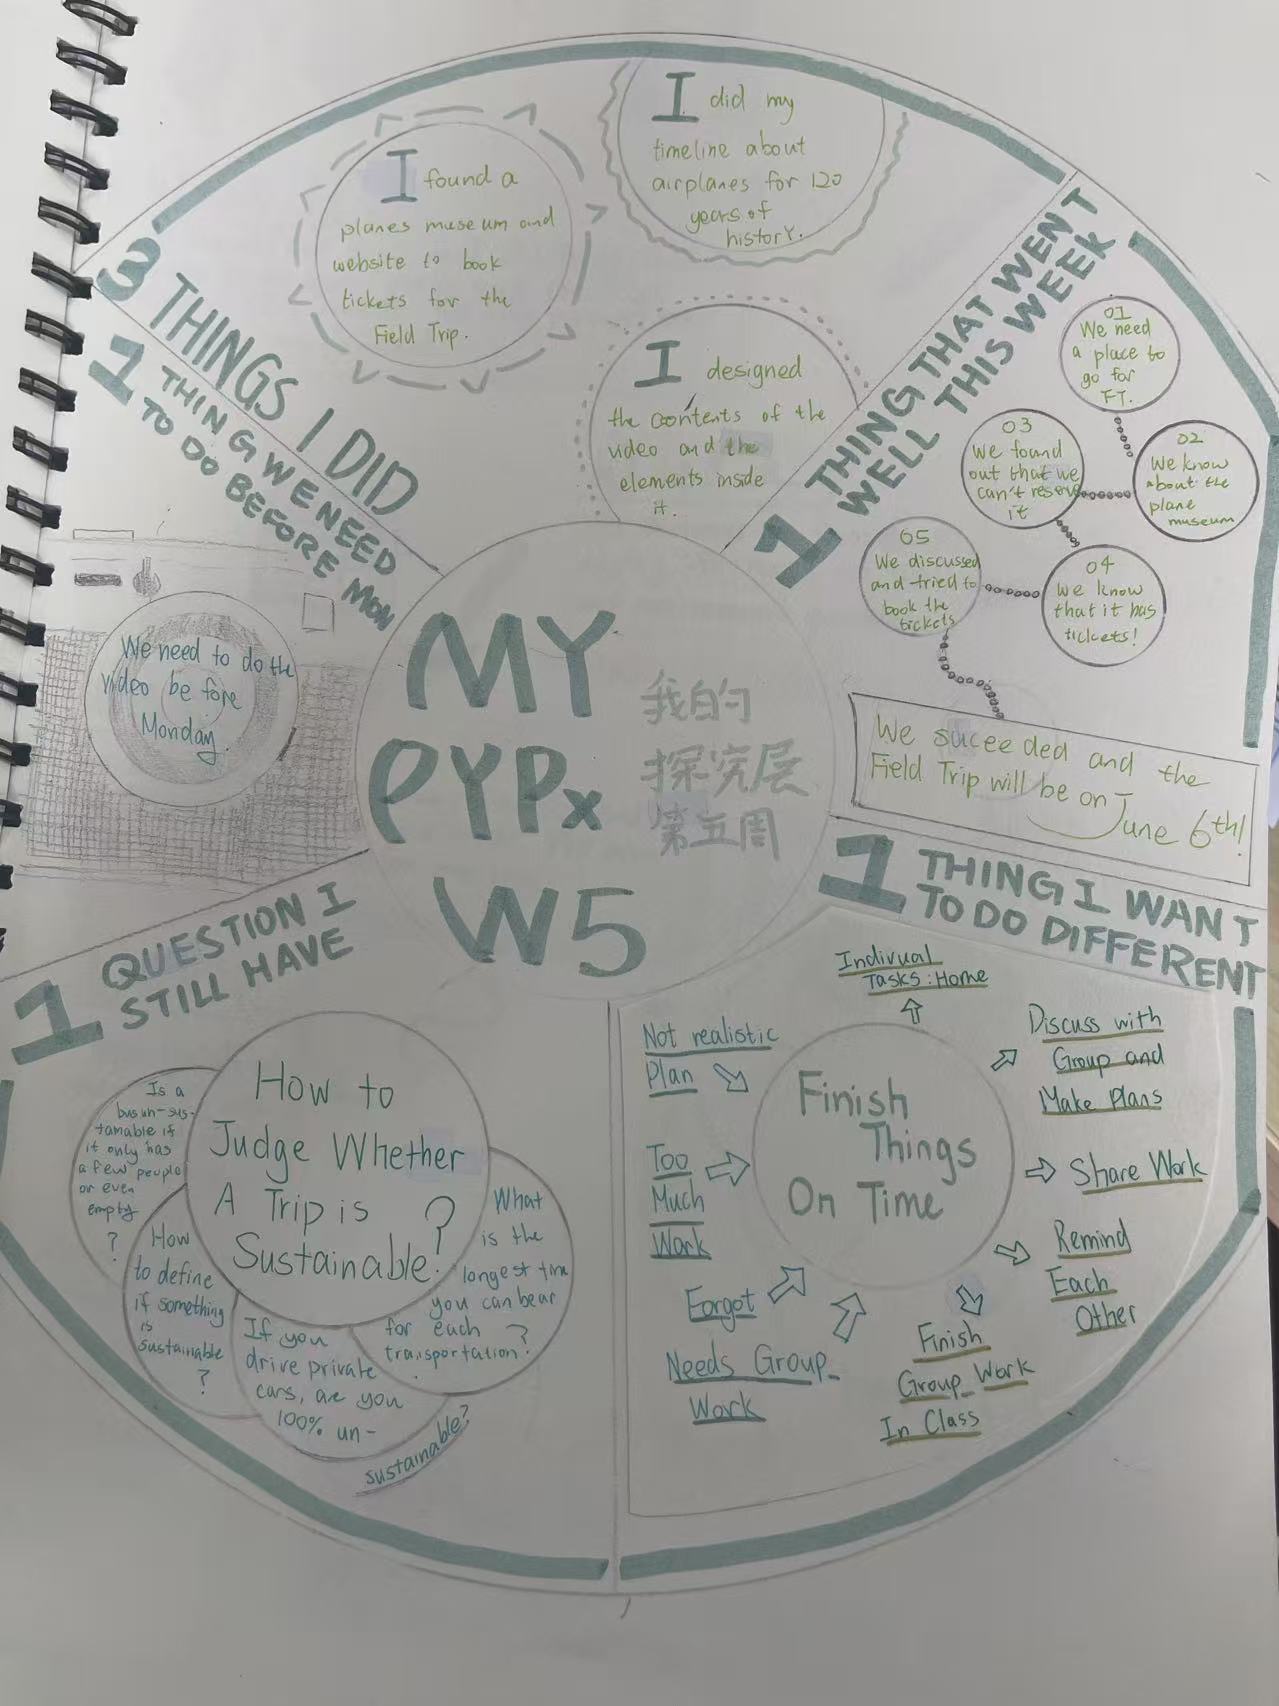 MY
PYPx
W5
我的
探究层
第五周
3 THINGS I DID
I found a
planes museum and
website to book
tickets for the
Field Trip.
I did my
timeline about
airplanes for 120
years of
history.
I designed
the contents of the
video and the
elements inside
it.
1 THING THAT WENT
WELL THIS WEEK
01
We need
a place to
go for
FT.
02
We know
about the
plane
museum
03
We found
out that we
can't reserve
it
04
We know
that it has
tickets!
05
We discussed
and tried to
book the
tickets
We suceeded and the
Field Trip will be on June 6th!
1 THING I WANT
TO DO DIFFERENT
Finish
Things
On Time
Not realistic
Plan
Too
Much
Work
Forgot
Needs Group
Work
Indivual
Tasks: Home
Discuss with
Group and
Make Plans
Share Work
Remind
Each
Other
Finish
Group Work
In Class
1 QUESTION I
STILL HAVE
How to
Judge Whether
A Trip is
Sustainable?
Is a
bus un-sus-
tainable if
it only has
a few people
or even
empty
?
How
to define
if something
is
sustainable
?
If you
drive private
cars, are you
100% un-
sustainable?
What
is the
longest time
you can bear
for each
transportation?
1 THING WE NEED
TO DO BEFORE MON
We need to do the
video before
Monday.